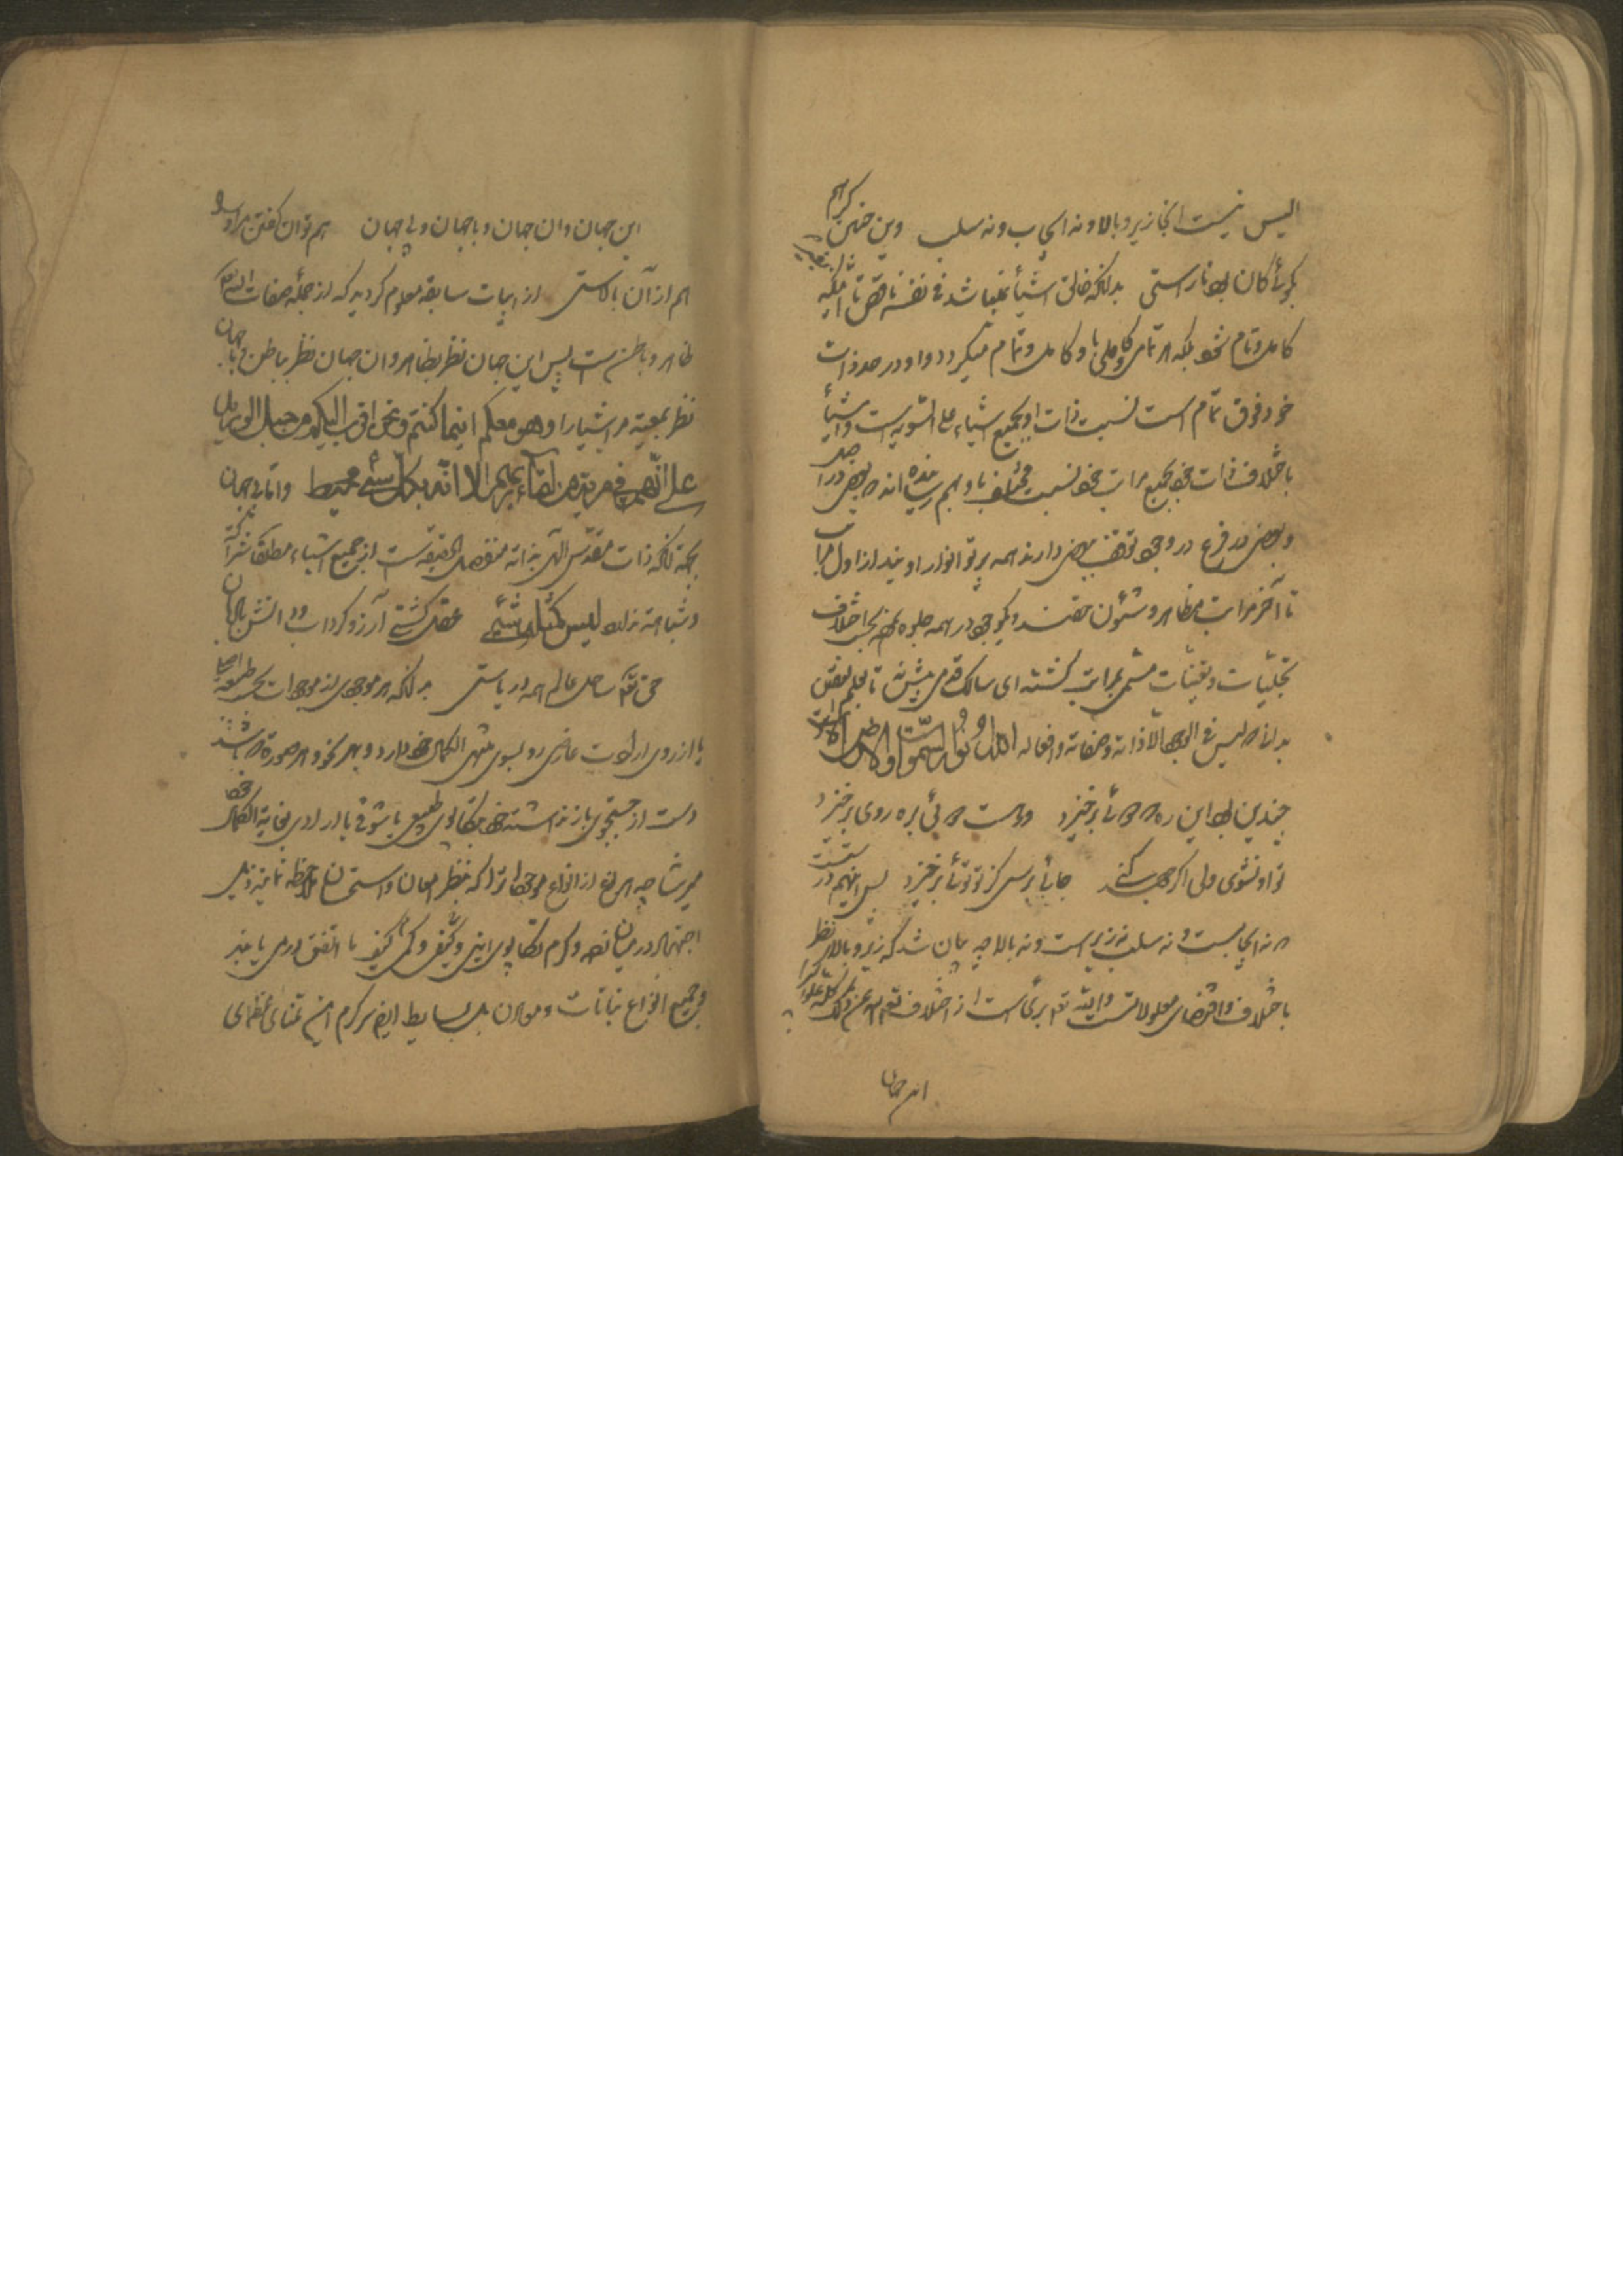 الیس نیست اینجا زیر و بالا و نه ایجاب و نه سلب وین چنین گر هم
بگوئی کان بود ناراستی بدانکه خالق اشیأ نمیباشد فی نفسه ناقص تا آنکه
کامل و تام شود بلکه هر تمامی و کاملی باو کامل و تمام میگردد و او در حد ذات
خود فوق تمام است نسبت ذات او بجمیع اشیاء علی السویه است و اشیأ
باختلاف ذات خود بجمیع مراتب خود نسبت مختلف باو بهم رسانیده اند بعضی در اصل
و بعضی در فرع در وجود توقف بعضی دارند همه پرتو انوار اویند از اول مراتب
تا آخر مراتب مظاهر و شئون حقند و یکوجود در همه جلوه نموده بحسب اختلاف
تجلیات و تعینات مسمی بمراتب گشته ای سالک قدمی پیش نه تا بعلم الیقین
بدانی لیس فی الوجود الا ذاته و صفاته و افعاله الله نور السموات والارض
چندین برو این ره که دوئی برخیزد ور هست دوئی بره روی برخیزد
تو او نشوی ولی اگر جهد کنی جائی برسی کز تو توئی برخیزد پس اینهم
نه ایجابست و نه سلب نه زیر است و نه بالا چه بیان شد که زیر و بالا نظر
باختلاف و اقتضای معلولاتست و الله تعالی بریست از اختلاف تعالی عن ذلک علوا کبیرا
این جهان
این جهان و ان جهان و با جهان و بی جهان هم توان گفتن مر او را
هم از آن بالاستی از ابیات سابقه معلوم گردید که از جمله صفات الله
ظاهر و باطن ست پس این جهان نظر بظاهر و ان جهان نظر بباطن و با جهان
نظر بمعیة مر اشیا را و هو معکم اینما کنتم و نحن اقرب الیه من حبل الورید
انهم فی مریة من لقاء ربهم الا انه بکل شئ محیط و اما بی جهان
بجهة آنکه ذات مقدس الهی بذاته منفصل الحقیقه ست از جمیع اشیاء مطلقا شراکة
و شباهت ندارد لیس کمثله شئ عقل کشتی آرزو گرداب و دانش بادبان
حق تعالی ساحل عالم همه دریاستی بدانکه هر موجودی از موجودات بحسب طبیعه
یا از روی ارادت عازمی رو بسوی منتهی الکمال خود دارد و بهر نحو و هر صورة که باشد
دست از جستجوی باز نداشته خود بتکاپوی طبیعی یا شوقی یا ارادی بغایة الکمال خود
میرساند چه هر نوع از انواع موجودات را که بنظر امعان و استحسان ملاحظه نمایند
اجتهاد در میان نهاده و گرم تکاپوی اینی و کیفی و کمی
و جمیع انواع نباتات و معادن بل بسایط ایضا سرگرم این تمنای عظمای